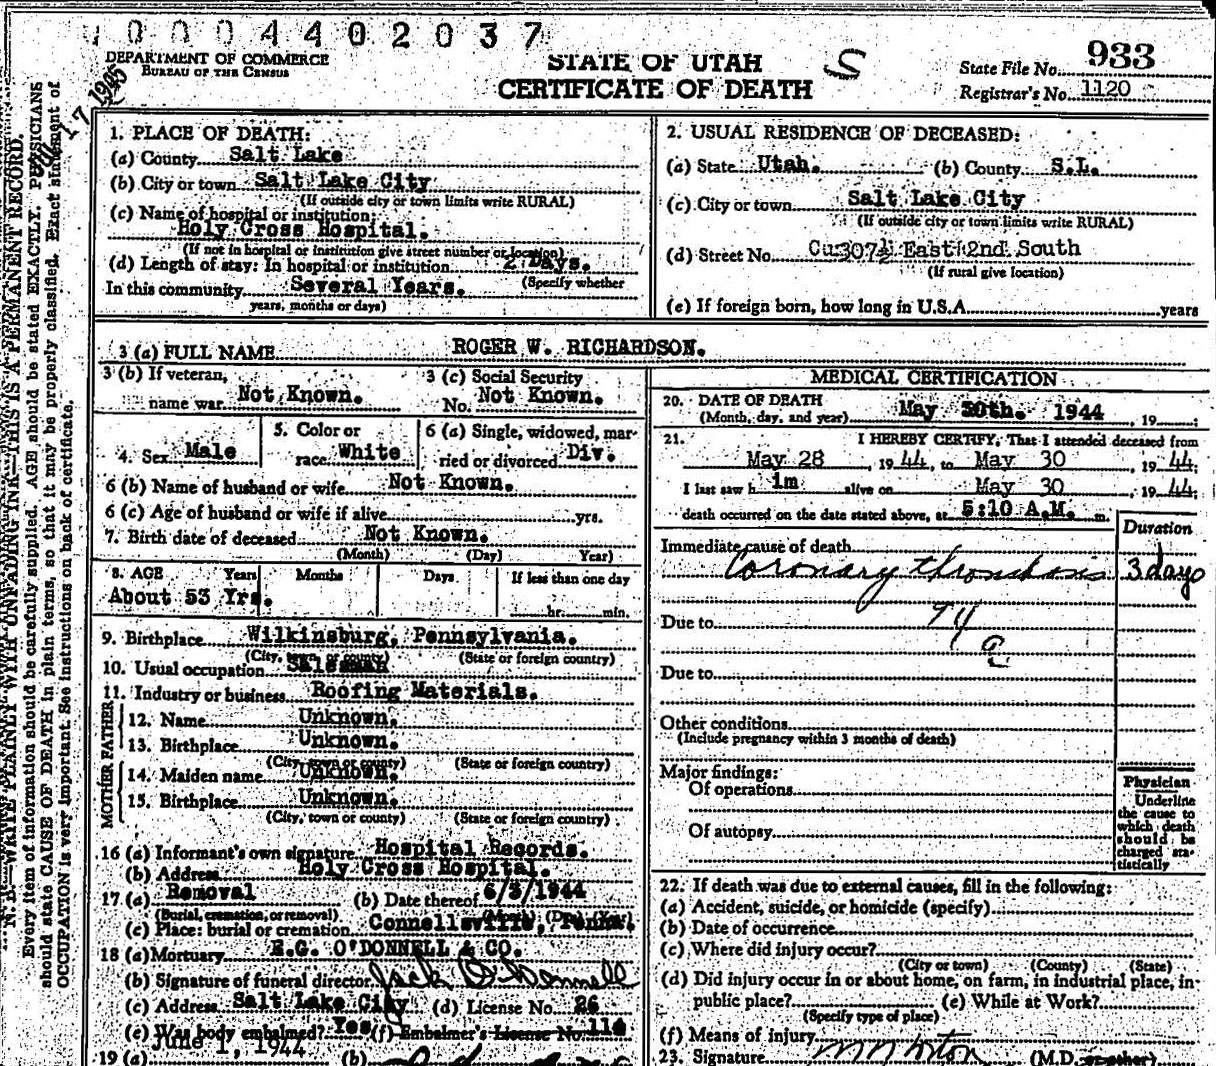 0 0 0 4 4 0 2 0 3 7
DEPARTMENT OF COMMERCE
BUREAU OF THE CENSUS
17 1945
STATE OF UTAH
CERTIFICATE OF DEATH
S
State File No. 933
Registrar's No. 1120
N. B.—WRITE PLAINLY WITH UNFADING INK—THIS IS A PERMANENT RECORD.
Every item of information should be carefully supplied. AGE should be stated EXACTLY. PHYSICIANS
should state CAUSE OF DEATH in plain terms, so that it may be properly classified. Exact statement of
OCCUPATION is very important. See instructions on back of certificate.
1. PLACE OF DEATH:
(a) County Salt Lake
(b) City or town Salt Lake City
(If outside city or town limits write RURAL)
(c) Name of hospital or institution:
Holy Cross Hospital.
(If not in hospital or institution give street number or location)
(d) Length of stay: In hospital or institution 2 Days.
(Specify whether
In this community Several Years.
years, months or days)
2. USUAL RESIDENCE OF DECEASED:
(a) State Utah. (b) County S.L.
(c) City or town Salt Lake City
(If outside city or town limits write RURAL)
(d) Street No. 307½ East 2nd South
(If rural give location)
(e) If foreign born, how long in U.S.A. years
3 (a) FULL NAME ROGER W. RICHARDSON.
3 (b) If veteran,
name war Not Known.
3 (c) Social Security
No. Not Known.
4. Sex Male
5. Color or
race White
6 (a) Single, widowed, mar-
ried or divorced Div.
6 (b) Name of husband or wife Not Known.
6 (c) Age of husband or wife if alive yrs.
7. Birth date of deceased Not Known.
(Month) (Day) Year)
8. AGE Years Months Days If less than one day
About 53 Yrs. hr. min.
9. Birthplace Wilkinsburg, Pennsylvania.
(City, town or county) (State or foreign country)
10. Usual occupation Salesman
11. Industry or business Roofing Materials.
FATHER
12. Name Unknown.
13. Birthplace Unknown.
(City, town or county) (State or foreign country)
MOTHER
14. Maiden name Unknown.
15. Birthplace Unknown.
(City, town or county) (State or foreign country)
16 (a) Informant's own signature Hospital Records.
(b) Address Holy Cross Hospital.
17 (a) Removal (b) Date thereof 6/3/1944
(Burial, cremation, or removal) (Month) (Day) (Year)
(c) Place: burial or cremation Connellsville, Penna.
18 (a) Mortuary E.G. O'DONNELL & CO.
(b) Signature of funeral director Jack O'Donnell
(c) Address Salt Lake City (d) License No. 26
(e) Was body embalmed? Yes (f) Embalmer's License No. 114
19 (a) June 1, 1944 (b)
MEDICAL CERTIFICATION
20. DATE OF DEATH
(Month, day, and year) May 30th. 1944, 19
21. I HEREBY CERTIFY, That I attended deceased from
May 28, 1944, to May 30, 1944;
I last saw h im alive on May 30, 1944;
death occurred on the date stated above, at 5:10 A.M. m.
Duration
Immediate cause of death
Coronary thrombosis 3 days
Due to 94
a
Due to
Other conditions
(Include pregnancy within 3 months of death)
Major findings:
Of operations
Of autopsy
Physician
Underline
the cause to
which death
should be
charged sta-
tistically
22. If death was due to external causes, fill in the following:
(a) Accident, suicide, or homicide (specify)
(b) Date of occurrence
(c) Where did injury occur?
(City or town) (County) (State)
(d) Did injury occur in or about home, on farm, in industrial place, in-
public place? (e) While at Work?
(Specify type of place)
(f) Means of injury
23. Signature (M.D. or other)